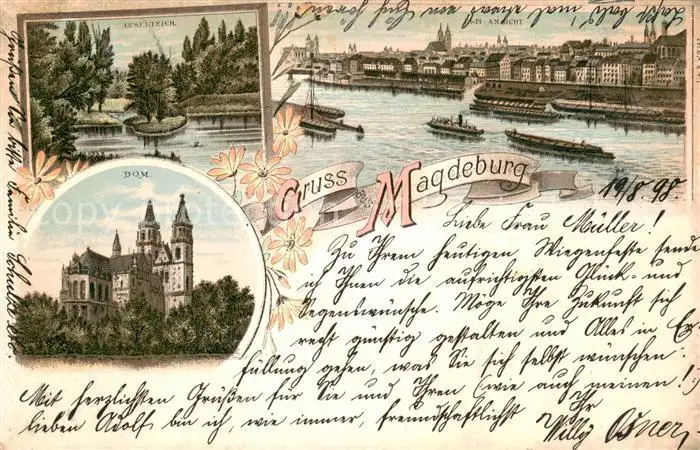 INSELTEICH.
DOM.
Gruss aus Magdeburg
19/8 98.
Liebe Frau Müller!
Zu Ihrem heutigen Wiegenfeste sende
ich Ihnen die aufrichtigsten Glück- und
Segenswünsche. Möge Ihre Zukunft sich
recht günstig gestalten und Alles in Er-
füllung gehen, was Sie sich selbst wünschen.
Mit herzlichsten Grüßen für Sie und Ihren (wie auch meinen!)
lieben Adolf bin ich, wie immer, freundschaftlichst Ihr
Willy